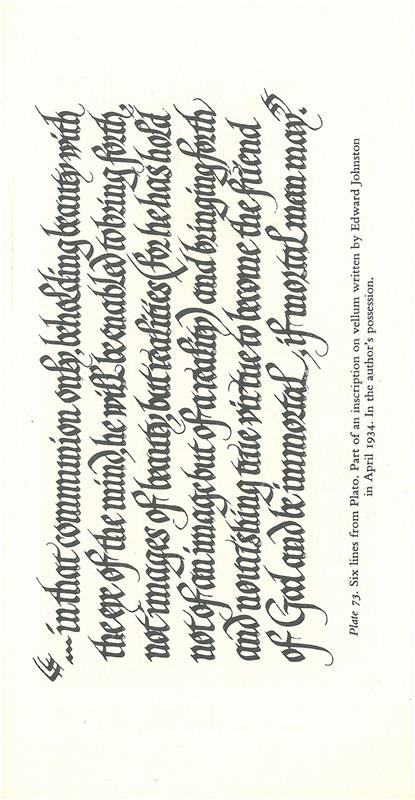 “… in that communion only, beholding beauty with
the eye of the mind, he will be enabled to bring forth,
not images of beauty, but realities (for he has hold
not of an image but of a reality) and bringing forth
and nourishing true virtue to become the friend
of God and be immortal, if mortal man may.”
Plate 73. Six lines from Plato. Part of an inscription on vellum written by Edward Johnston
in April 1934. In the author's possession.